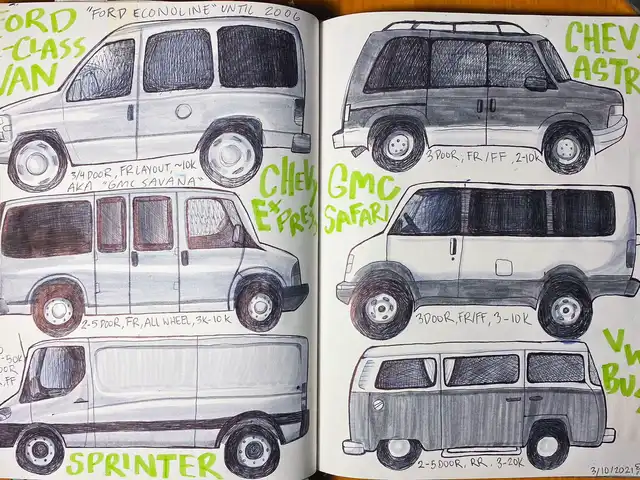 FORD
E-CLASS
VAN
"FORD ECONOLINE" UNTIL 2006
3/4 DOOR, FR LAYOUT, ~10K
AKA "GMC SAVANA"
CHEVY
EXPRESS
2-5 DOOR, FR, ALL WHEEL, 3K-10K
-50K
FF
SPRINTER
CHEVY
ASTRO
3 DOOR, FR/FF, 2-10K
GMC
SAFARI
3 DOOR, FR/FF, 3-10K
VW
BUS
2-5 DOOR, RR. 3-20K
3/10/2021